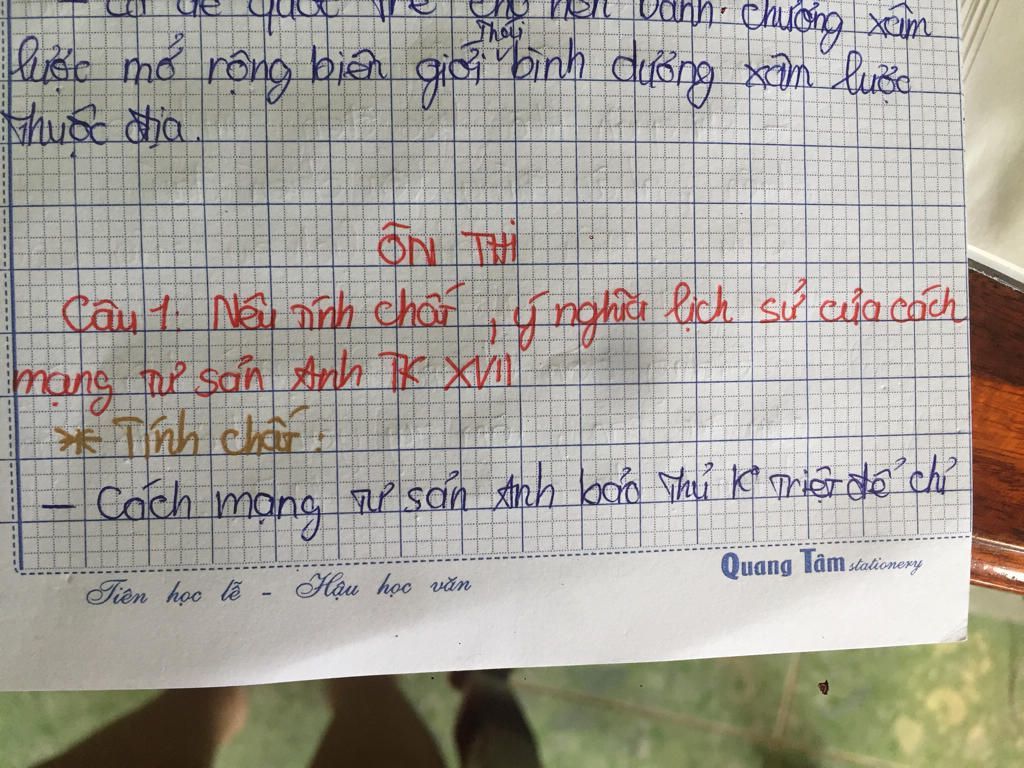 - Cái đế quốc trẻ chủ nên bành chướng xâm
lược mở rộng biên giới Thái bình dương xâm lược
thuộc địa.
ÔN THI
Câu 1. Nêu tính chất, ý nghĩa lịch sử của cách
mạng tư sản Anh TK XVII
* Tính chất:
- Cách mạng tư sản Anh bảo thủ K triệt để chỉ
Tiên học lễ - Hậu học văn
Quang Tâm stationery